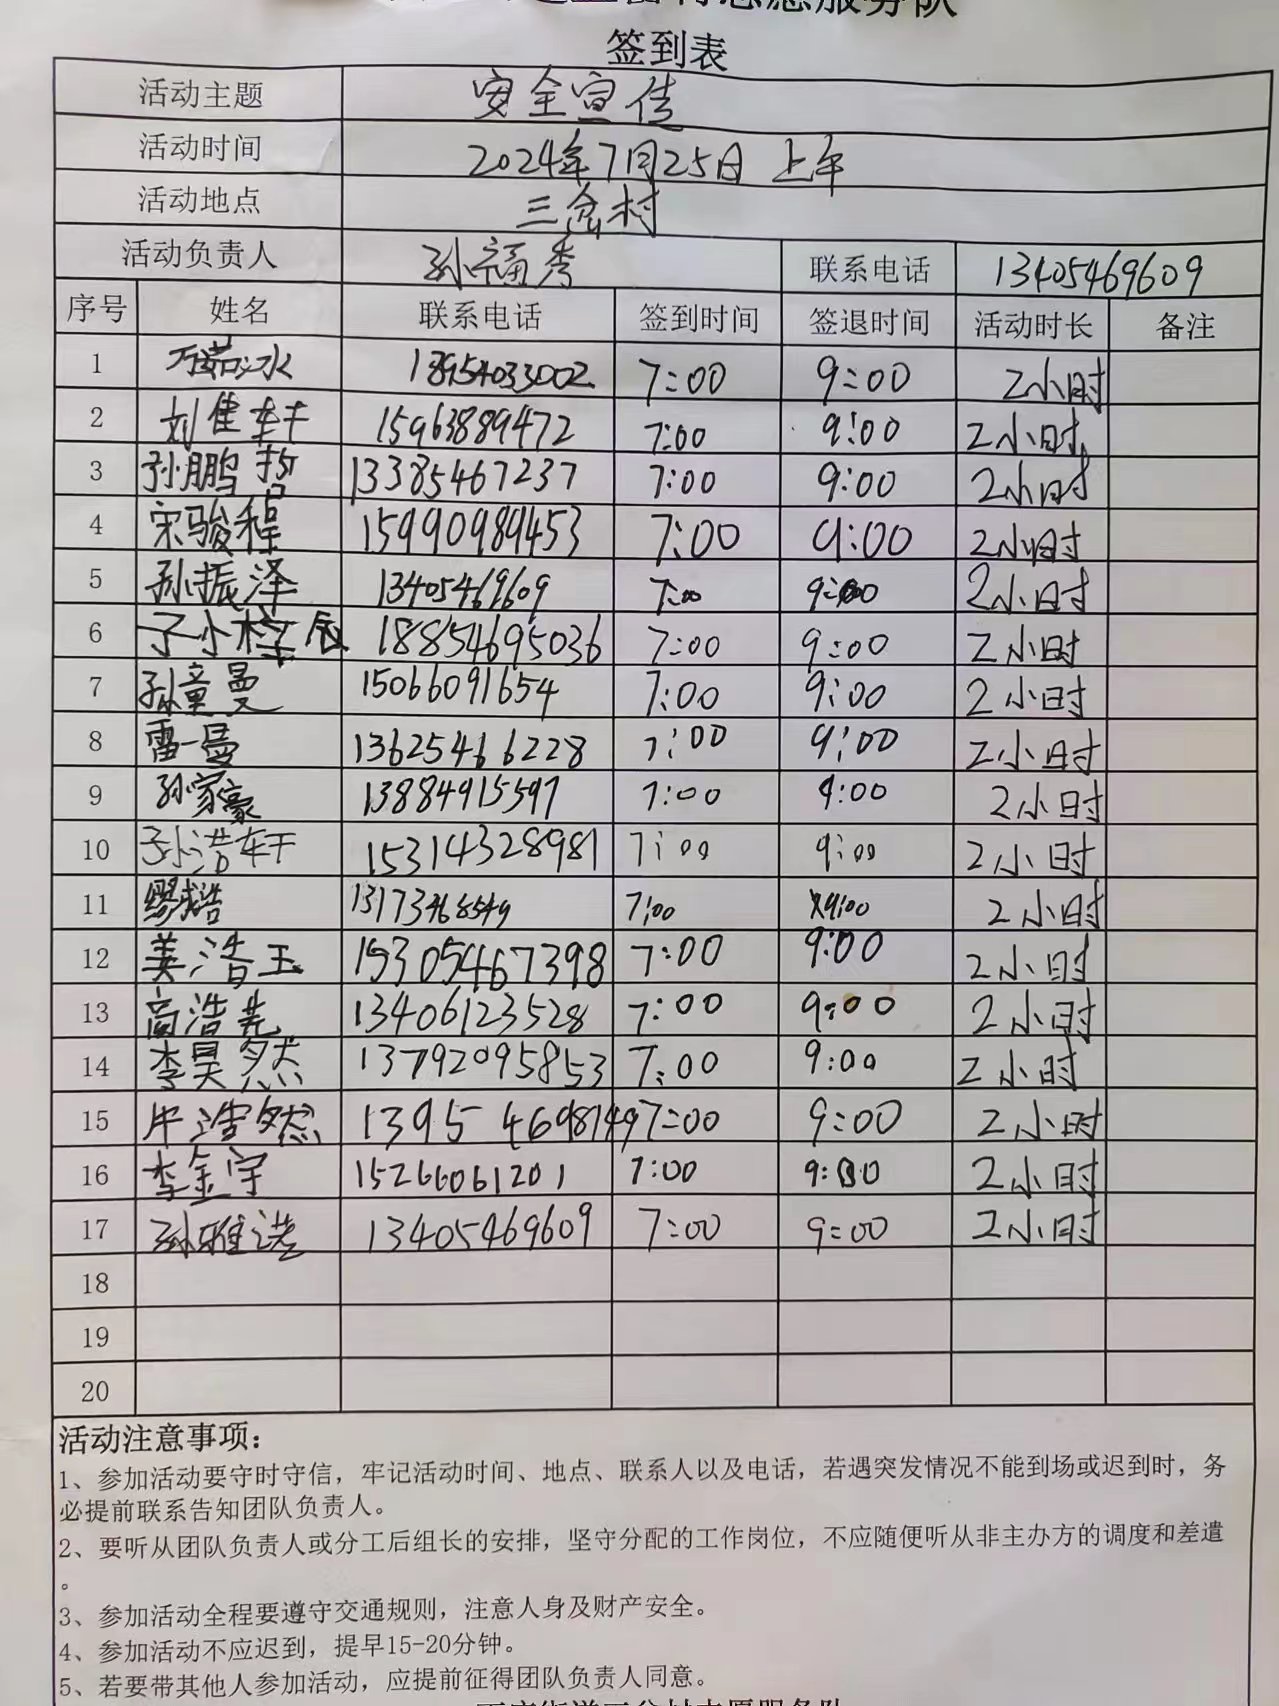 志愿服务队
签到表
活动主题 安全宣传
活动时间 2024年7月25日 上午
活动地点 三岔村
活动负责人 孙福秀 联系电话 13405469609
序号 姓名 联系电话 签到时间 签退时间 活动时长 备注
1 万茹冰 18954033002 7:00 9:00 2小时
2 刘佳轩 15963889472 7:00 9:00 2小时
3 孙鹏哲 13385467237 7:00 9:00 2小时
4 宋骏程 15990989453 7:00 9:00 2小时
5 孙振泽 13405469609 7:00 9:00 2小时
6 孙梓辰 18854695036 7:00 9:00 2小时
7 孙童曼 15066091654 7:00 9:00 2小时
8 雷一曼 13625466228 7:00 9:00 2小时
9 孙家豪 13884915597 7:00 9:00 2小时
10 孙浩轩 15314328981 7:00 9:00 2小时
11 缪浩 13173468549 7:00 9:00 2小时
12 姜浩玉 15305467398 7:00 9:00 2小时
13 高浩先 13406123528 7:00 9:00 2小时
14 李昊然 13792095853 7:00 9:00 2小时
15 浩然 13954698149 7:00 9:00 2小时
16 李金宇 15266061201 7:00 9:00 2小时
17 孙雅港 13405469609 7:00 9:00 2小时
18
19
20
活动注意事项：
1、参加活动要守时守信，牢记活动时间、地点、联系人以及电话，若遇突发情况不能到场或迟到时，务
必提前联系告知团队负责人。
2、要听从团队负责人或分工后组长的安排，坚守分配的工作岗位，不应随便听从非主办方的调度和差遣
。
3、参加活动全程要遵守交通规则，注意人身及财产安全。
4、参加活动不应迟到，提早15-20分钟。
5、若要带其他人参加活动，应提前征得团队负责人同意。